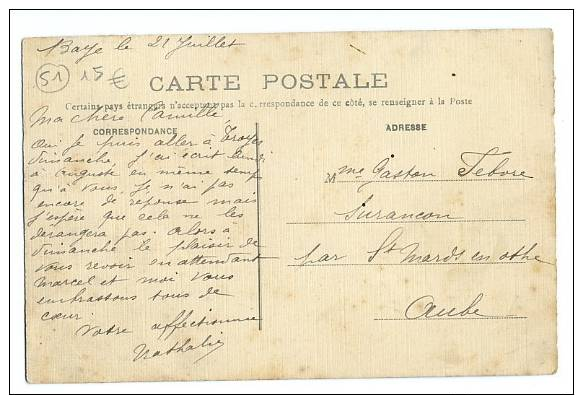 Baye le 21 Juillet
51 15€
CARTE POSTALE
Certains pays étrangers n'acceptent pas la correspondance de ce côté, se renseigner à la Poste
Ma chère Camille,
CORRESPONDANCE
Oui je puis aller à Troyes
dimanche, j'ai écrit lundi
à Auguste en même temps
qu'à vous. Je n'ai pas
encore de réponse mais
j'espère que cela ne les
dérangera pas. Alors à
dimanche le plaisir de
vous revoir en attendant
Marcel et moi vous
embrassons tous de
cœur
Votre affectionnée
Nathalie
ADRESSE
Mme Gaston Febvre
Surançon
par St Mards en othe
Aube